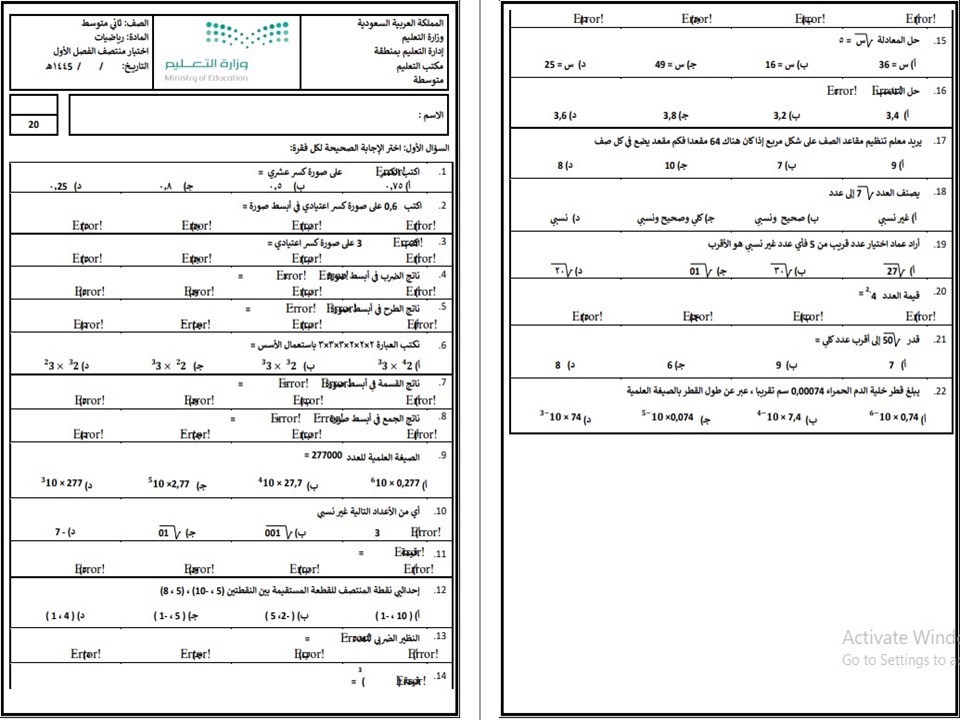 المملكة العربية السعودية
وزارة التعليم
إدارة التعليم بمنطقة
مكتب التعليم
متوسطة
وزارة التعليم
Ministry of Education
الصف: ثاني متوسط
المادة: رياضيات
اختبار منتصف الفصل الأول
التاريخ: / / ١٤٤٥هـ
الاسم :
20
السؤال الأول: اختر الإجابة الصحيحة لكل فقرة:
1. اكتب الكسر Error! على صورة كسر عشري =
أ) ٠,٧٥ ب) ٠,٥ جـ) ٠,٨ د) 0,25
2. اكتب 0,6 على صورة كسر اعتيادي في أبسط صورة =
Error! Error! Error! Error!
3. Error! 3 على صورة كسر اعتيادي =
Error! Error! Error! Error!
4. ناتج الضرب في أبسط صورة Error! Error! =
Error! Error! Error! Error!
5. ناتج الطرح في أبسط صورة Error! Error! =
Error! Error! Error! Error!
6. نكتب العبارة ٢×٢×٢×٣×٣×٣ باستعمال الأسس =
أ) 2⁴ × 3³ ب) 2³ × 3³ جـ) 2² × 3³ د) 2³ × 3²
7. ناتج القسمة في أبسط صورة Error! Error! =
Error! Error! Error! Error!
8. ناتج الجمع في أبسط صورة Error! Error! =
Error! Error! Error! Error!
9. الصيغة العلمية للعدد 277000 =
أ) 0,277 × 10⁶ ب) 27,7 × 10⁴ جـ) 2,77× 10⁵ د) 277 × 10³
10. أي من الأعداد التالية غير نسبي
Error! 3 ب) √001 جـ) √01 د) - 7
11. قيمة Error! =
Error! Error! Error! Error!
12. إحداثيي نقطة المنتصف للقطعة المستقيمة بين النقطتين (5 ، -10) ، (5 ، 8)
أ) ( 10 ، -1 ) ب) (-2، 5 ) جـ) ( 5 ، -1 ) د) ( 4 ، 1 )
13. النظير الضربي للعدد Error! =
Error! Error! Error! Error!
14. قيمة ( Error! )³ =
Error! Error! Error! Error!
15. حل المعادلة √س = ٥
أ) س = 36 ب) س = 16 جـ) س = 49 د) س = 25
16. حل التناسب Error! Error!
أ) 3,4 ب) 3,2 جـ) 3,8 د) 3,6
17. يريد معلم تنظيم مقاعد الصف على شكل مربع إذا كان هناك 64 مقعدا فكم مقعد يضع في كل صف
أ) 9 ب) 7 جـ) 10 د) 8
18. يصنف العدد √7 إلى عدد
أ) غير نسبي ب) صحيح ونسبي جـ) كلي وصحيح ونسبي د) نسبي
19. أراد عماد اختيار عدد قريب من 5 فأي عدد غير نسبي هو الأقرب
أ) √27 ب) √٣٠ جـ) √01 د) √٢٠
20. قيمة العدد 4⁻² =
Error! Error! Error! Error!
21. قدر √50 إلى أقرب عدد كلي =
أ) 7 ب) 9 جـ) 6 د) 8
22. يبلغ قطر خلية الدم الحمراء 0,00074 سم تقريبا ، عبر عن طول القطر بالصيغة العلمية
أ) 0,74 × 10⁻⁶ ب) 7,4 × 10⁻⁴ جـ) 0,074× 10⁻⁵ د) 74 × 10⁻³
Activate Wind
Go to Settings to a